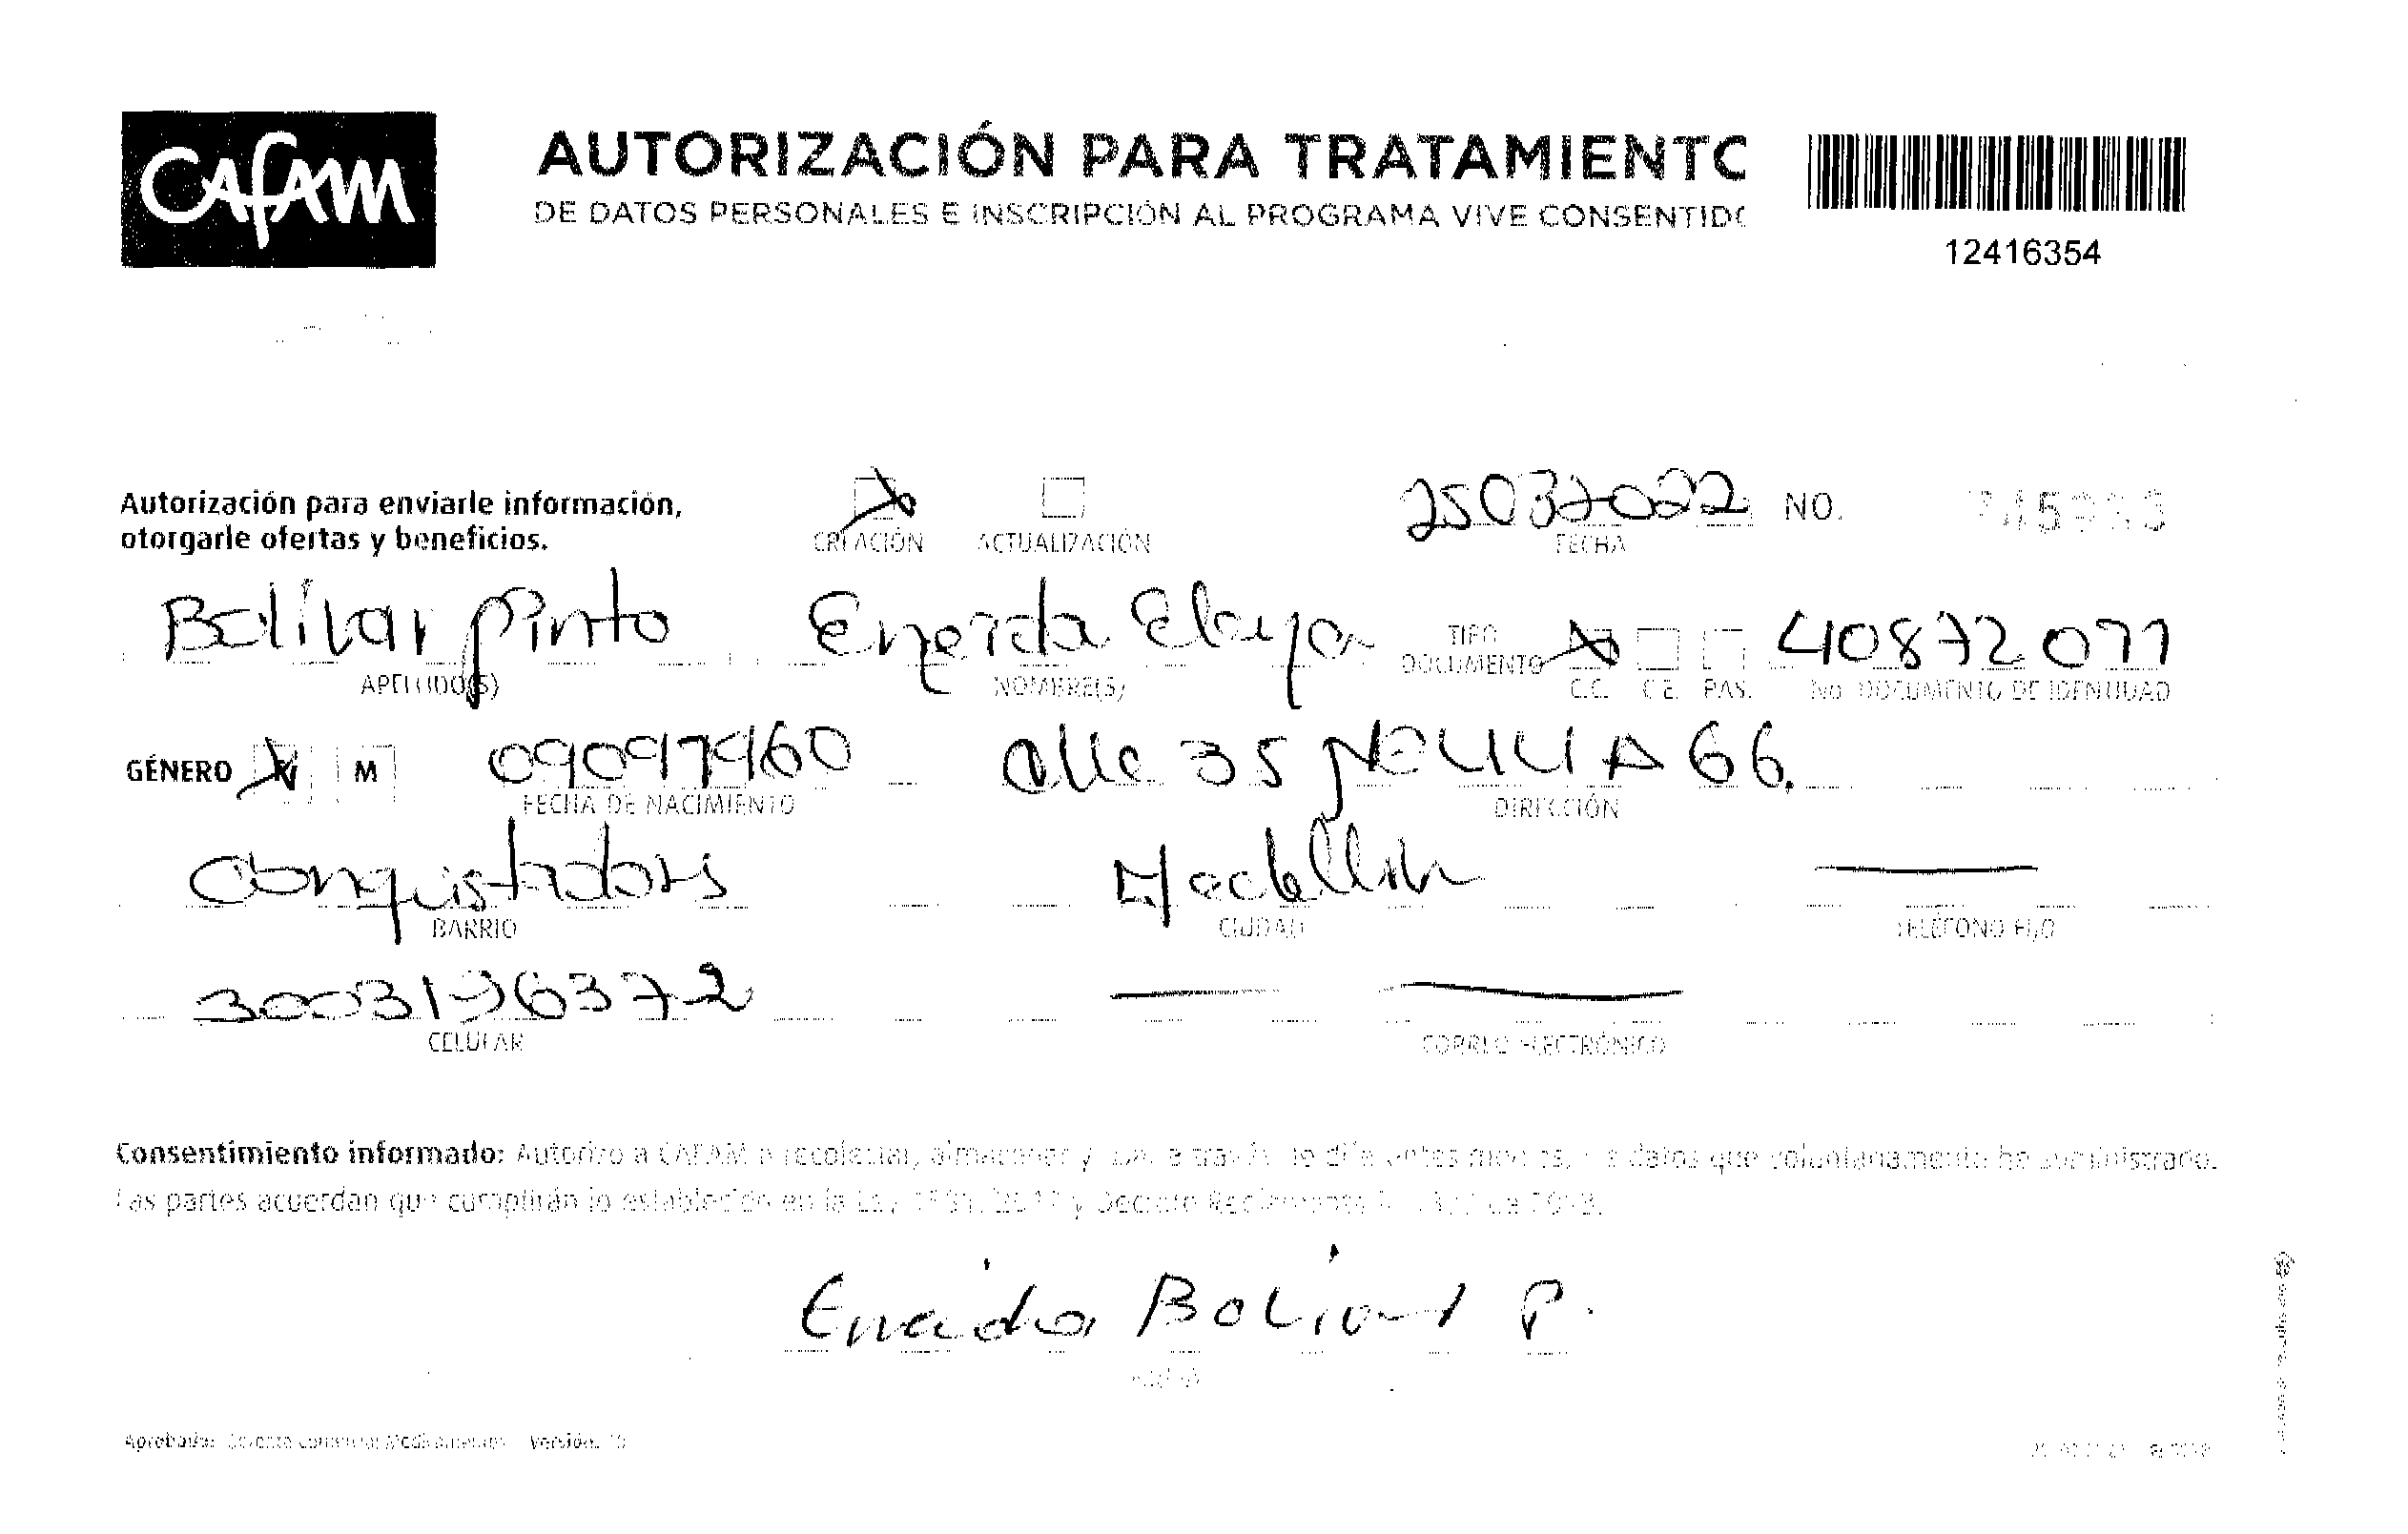 CAfAM
AUTORIZACIÓN PARA TRATAMIENTO
DE DATOS PERSONALES E INSCRIPCIÓN AL PROGRAMA VIVE CONSENTIDO
12416354
Autorización para enviarle información,
otorgarle ofertas y beneficios.
CREACIÓN ACTUALIZACIÓN
25032022 NO.
FECHA
Bolívar pinto Eneida Elaya 40872071
TIPO DOCUMENTO
APELLIDO(S) NOMBRE(S) C.C. C.E. PAS. No. DOCUMENTO DE IDENTIDAD
GÉNERO M 09091960 Calle 35 No 44 A 66.
FECHA DE NACIMIENTO DIRECCIÓN
Conquistadors Medellin
BARRIO CIUDAD TELÉFONO FIJO
3003196372
CELULAR CORREO ELECTRÓNICO
Consentimiento informado: Autorizo a CAFAM a recolectar, almacenar y a través de diferentes medios, datos que voluntariamente he suministrado.
Las partes acuerdan que cumplirán lo establecido en la Ley y Decreto Reglamentario
Eneida Bolivar P.
Aprobado: Versión: